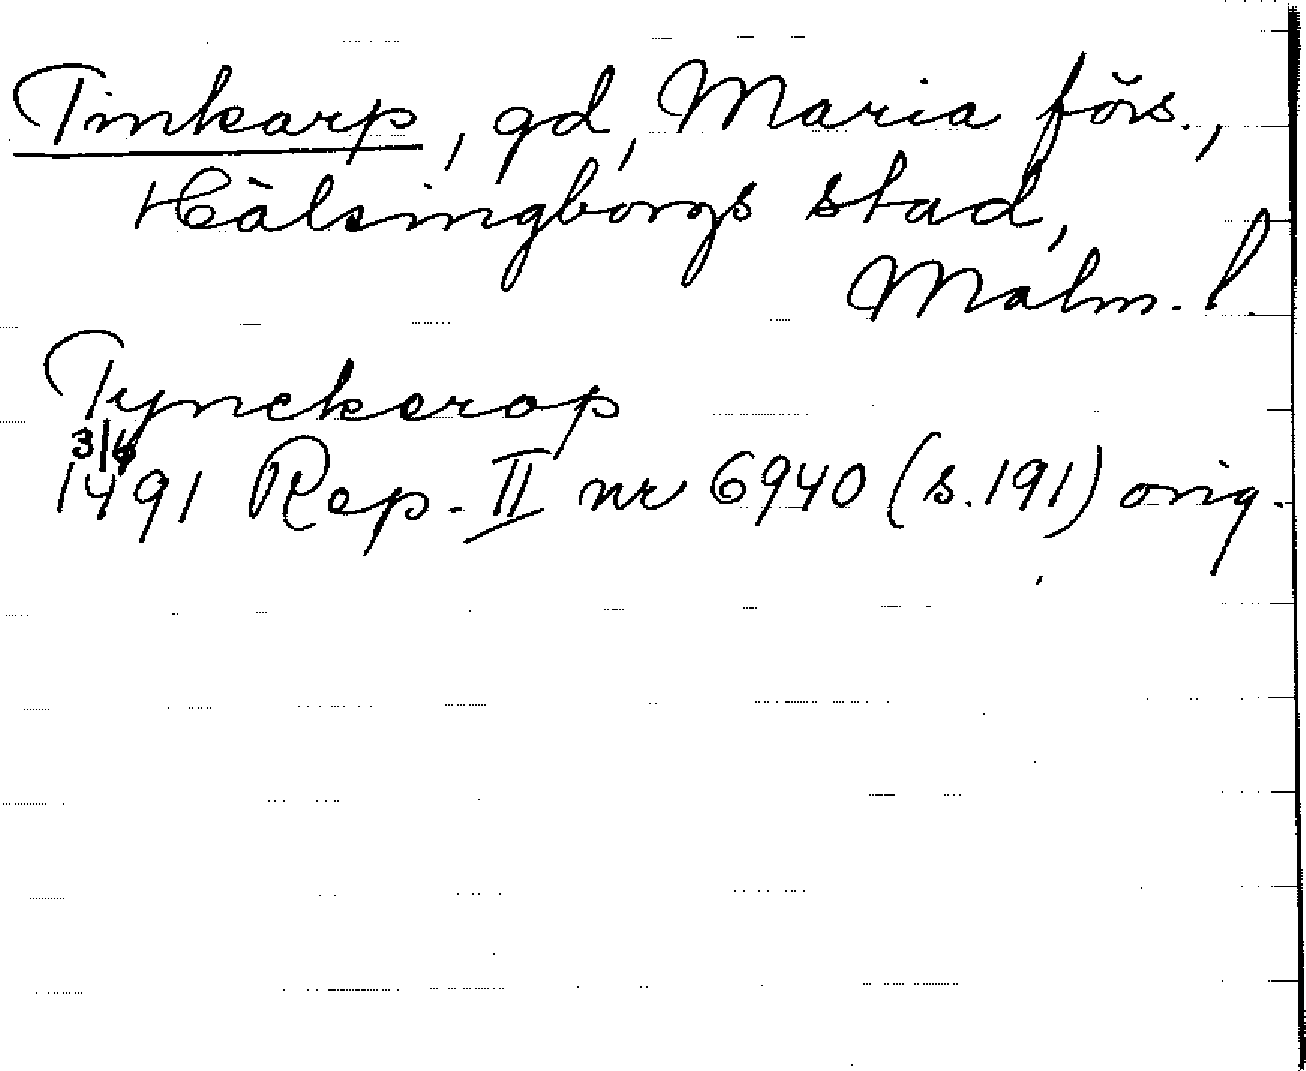 Tinkarp, gd, Maria förs.,
Hälsingborgs stad,
Malm. l.
Tynckerop
3/6
1491 Rep. II nr 6940 (s. 191) orig.